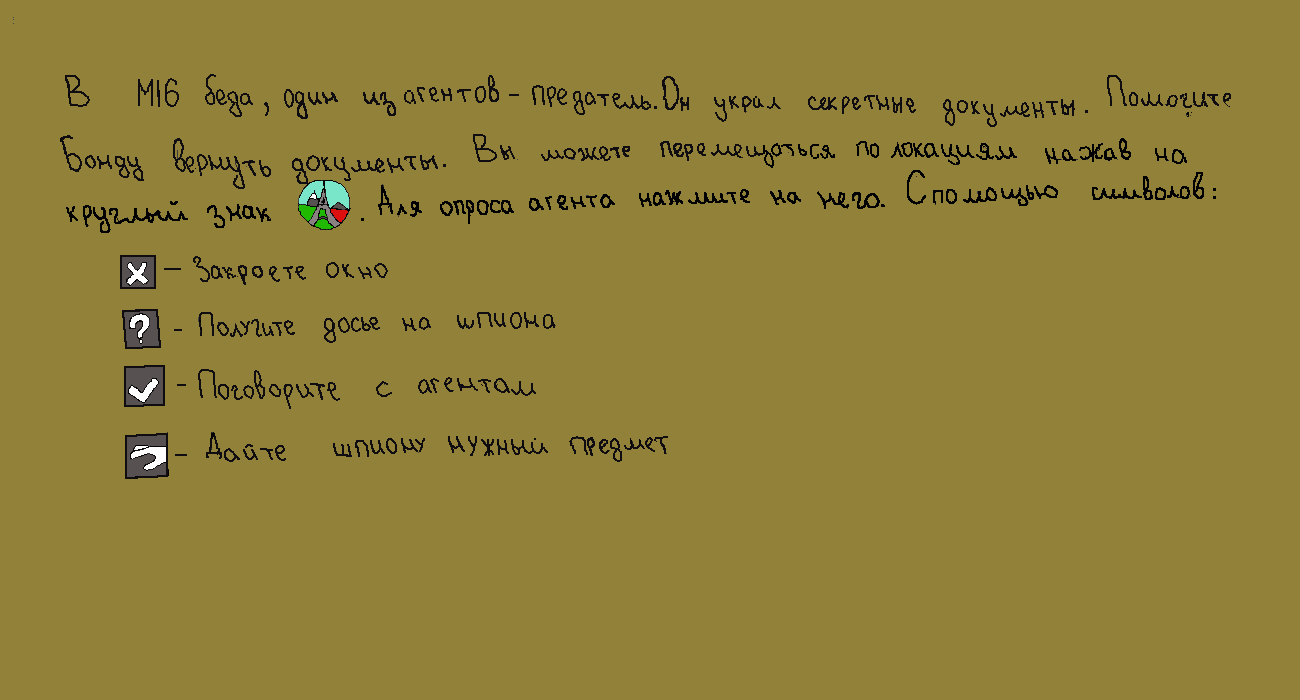 В МI6 беда, один из агентов - предатель. Он украл секретные документы. Помогите
Бонду вернуть документы. Вы можете перемещаться по локациям нажав на
круглый знак . Для опроса агента нажмите на него. С помощью символов:
X - Закроете окно
? - Получите досье на шпиона
✓ - Поговорите с агентам
- Дайте шпиону нужный предмет